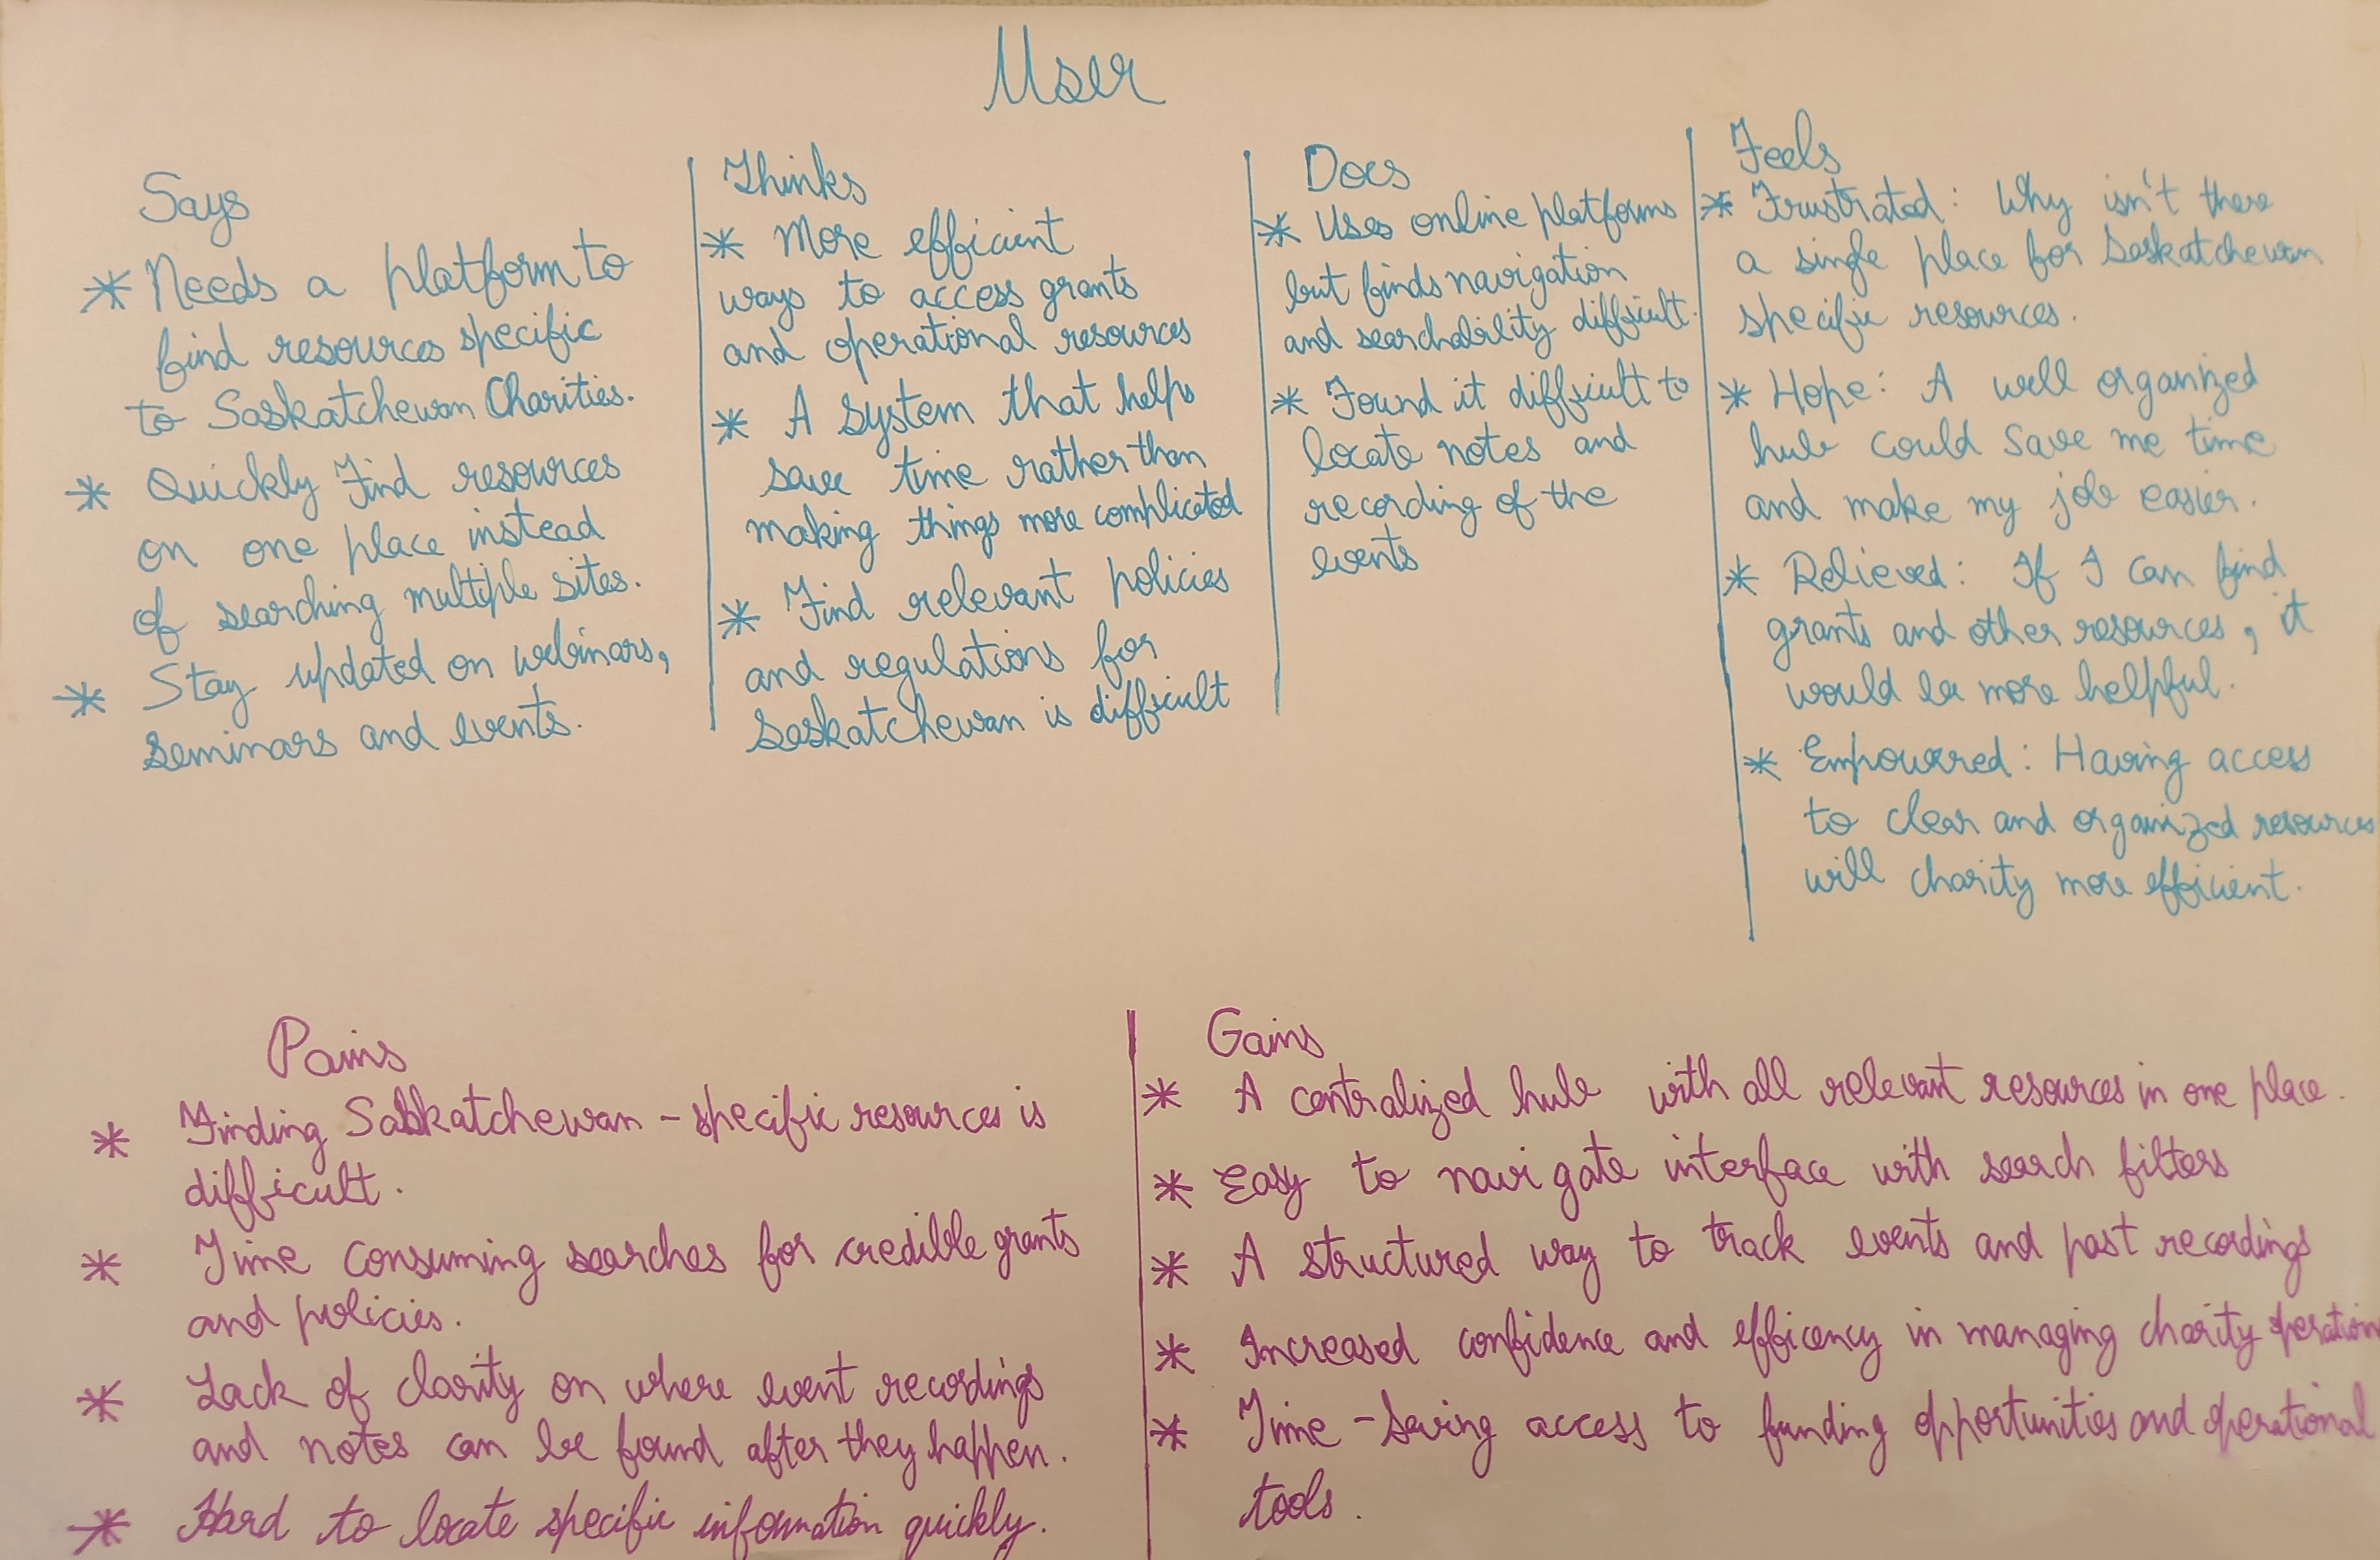 User
Says
* Needs a platform to
find resources specific
to Saskatchewan Charities.
* Quickly Find resources
on one place instead
of searching multiple sites.
* Stay updated on webinars,
seminars and events.
Thinks
* More efficient
ways to access grants
and operational resources
* A system that helps
save time rather than
making things more complicated
* Find relevant policies
and regulations for
Saskatchewan is difficult
Does
* Uses online platforms
but finds navigation
and searchability difficult.
* Found it difficult to
locate notes and
recording of the
events
Feels
* Frustrated: Why isn't there
a single place for Saskatchewan
specific resources.
* Hope: A well organized
hub could save me time
and make my job easier.
* Relieved: If I can find
grants and other resources, it
would be more helpful.
* Empowered: Having access
to clear and organized resources
will charity more efficient.
Pains
* Finding Saskatchewan - specific resources is
difficult.
* Time consuming searches for credible grants
and policies.
* Lack of clarity on where event recordings
and notes can be found after they happen.
* Hard to locate specific information quickly.
Gains
* A centralized hub with all relevant resources in one place.
* Easy to navigate interface with search filters
* A structured way to track events and past recordings
* Increased confidence and efficency in managing charity operation
* Time - Saving access to funding opportunities and operational
tools.